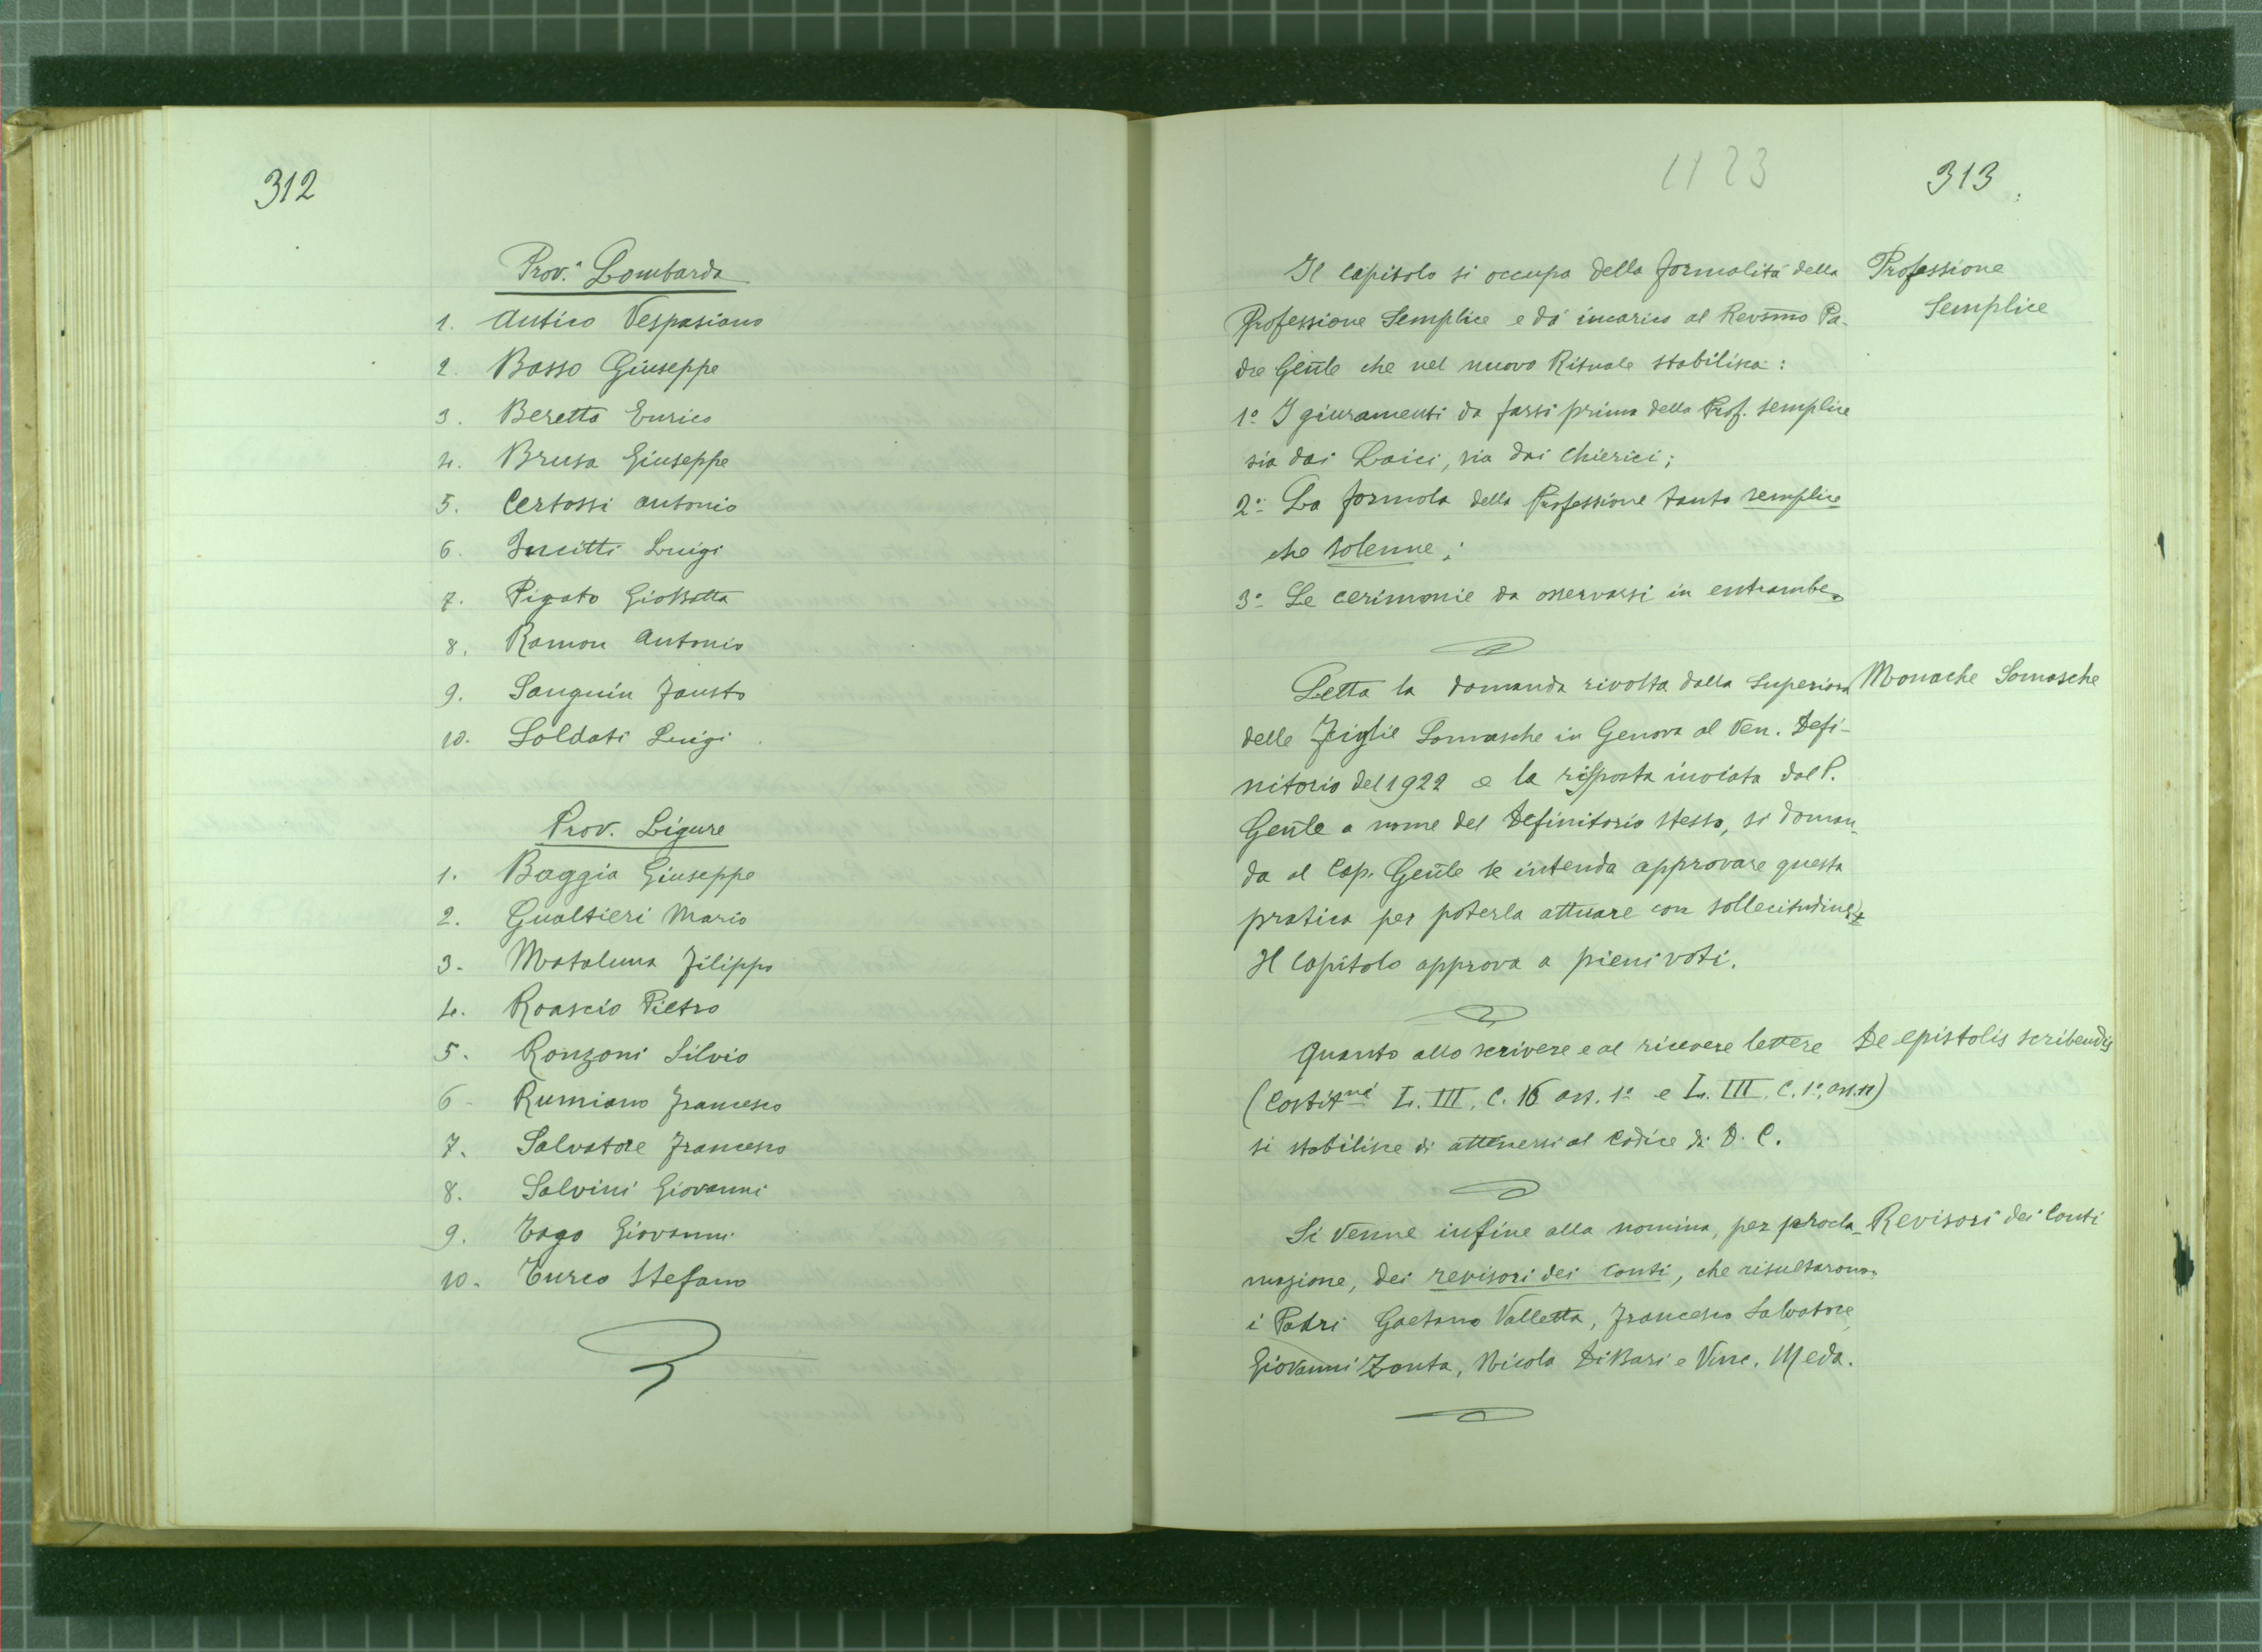 312
Prov.ª Lombarda
1. Antico Vespasiano
2. Basso Giuseppe
3. Beretta Enrico
4. Brusa Giuseppe
5. Certossi Antonio
6. Incitti Luigi
7. Pigato GioBatta
8. Ramon Antonio
9. Sanguin Fausto
10. Soldati Luigi
Prov. Ligure
1. Baggia Giuseppe
2. Gualtieri Mario
3. Mataluna Filippo
4. Roascio Pietro
5. Ronzoni Silvio
6 - Rumiano Francesco
7. Salvatore Francesco
8. Salvini Giovanni
9. Zago Giovanni
10. Turco Stefano
1923
313
Il Capitolo si occupa della formalità della
Professione Semplice e dà incarico al Revsm̄o Pa-
dre Gen̄le che nel nuovo Rituale stabilisca:
1º I giuramenti da farsi prima della Prof. semplice
sia dai Laici, sia dai Chierici;
2º La formola della Professione tanto semplice
che solenne;
3º Le cerimonie da osservarsi in entrambe.
Professione
Semplice
Letta la domanda rivolta dalla Superiora
delle Figlie Somasche in Genova al Ven. Defi-
nitorio del 1922 e la risposta inviata dal P.
Gen̄le a nome del Definitorio stesso, si doman-
da al Cap. Gen̄le se intenda approvare questa
pratica per poterla attuare con sollecitudine.
Il Capitolo approva a pieni voti.
Monache Somasche
Quanto allo scrivere e al ricevere lettere
(Costitni L. III, C. 16 art. 1º e L. III, C. 1º, art. 11)
si stabilisce di attenersi al Codice di D. C.
De epistolis scribendis
Si venne infine alla nomina, per procla-
mazione, dei revisori dei conti, che risultarono
i Padri Gaetano Valletta, Francesco Salvatore,
Giovanni Zonta, Nicola Di Bari e Vinc. Meda.
Revisori dei Conti